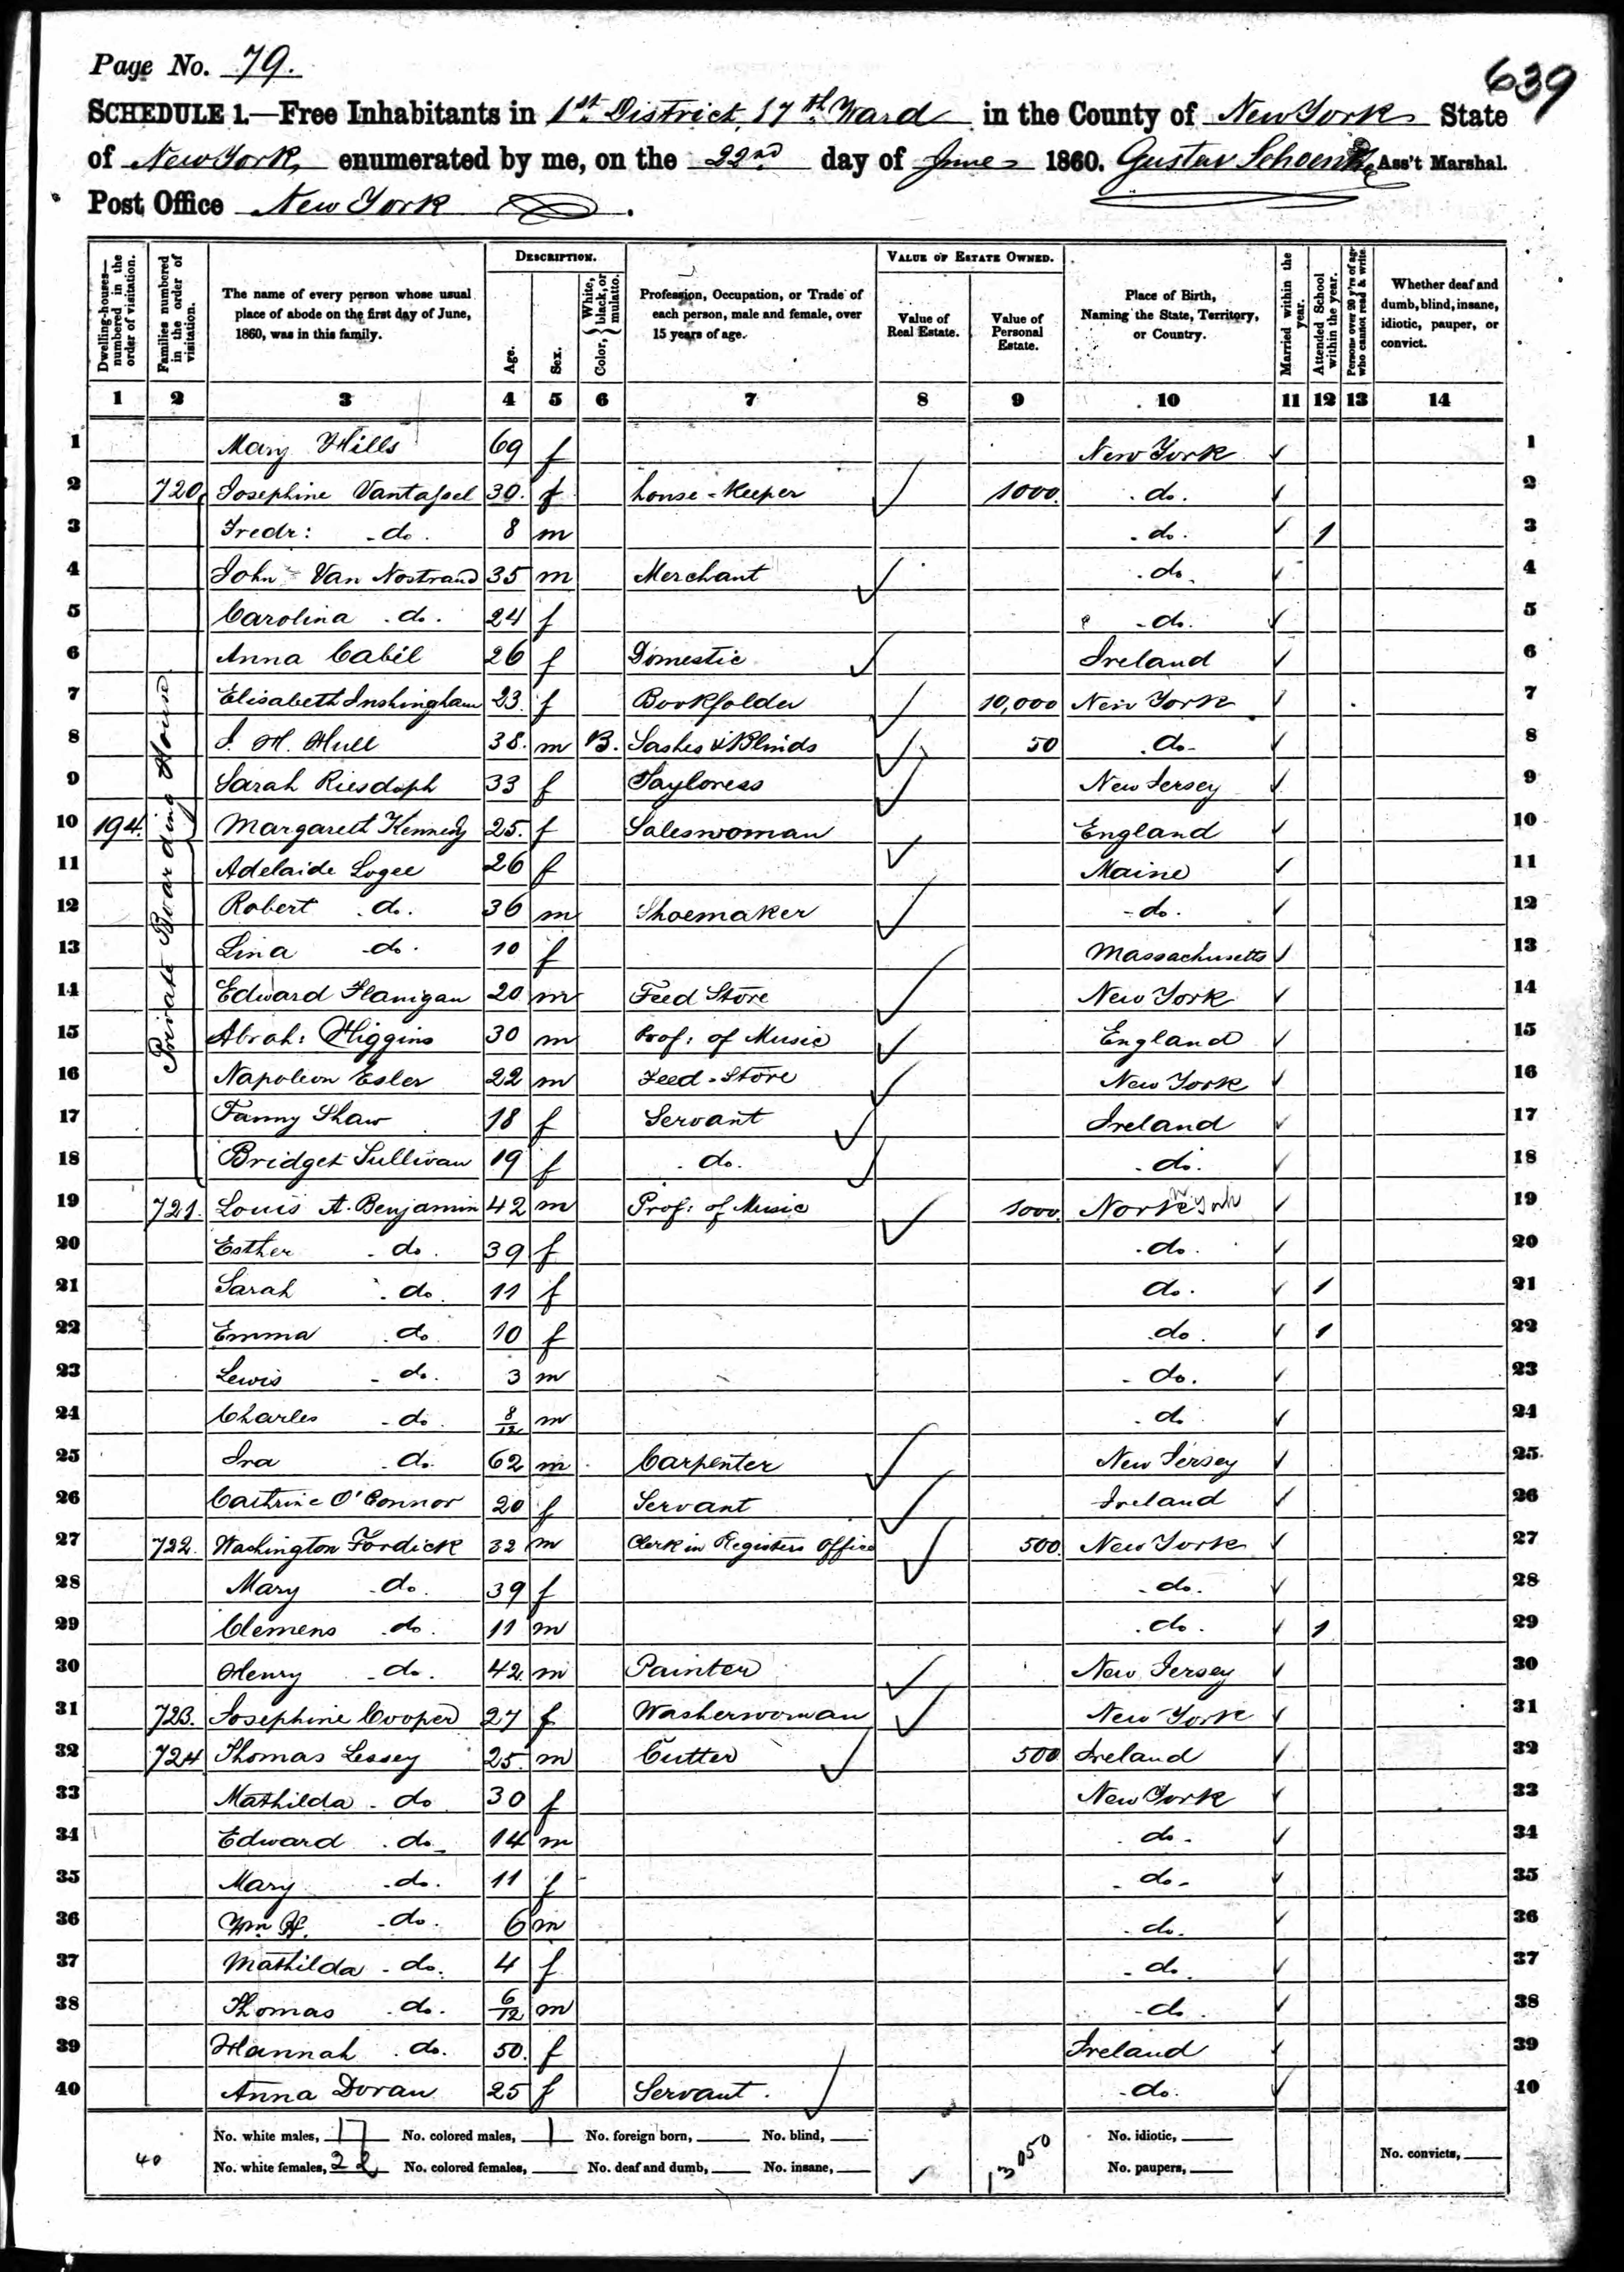 Page No. 79.
639
SCHEDULE 1.—Free Inhabitants in 1st District, 17th Ward in the County of New York State
of New York, enumerated by me, on the 22nd day of June 1860. Gustav Ass't Marshal.
Post Office New York.
Dwelling-houses—numbered in the order of visitation.
Families numbered in the order of visitation.
The name of every person whose usual place of abode on the first day of June, 1860, was in this family.
DESCRIPTION.
Age.
Sex.
Color, { White, black, or mulatto.
Profession, Occupation, or Trade of each person, male and female, over 15 years of age.
VALUE OF ESTATE OWNED.
Value of Real Estate.
Value of Personal Estate.
Place of Birth, Naming the State, Territory, or Country.
Married within the year.
Attended School within the year.
Persons over 20 y'rs of age who cannot read & write.
Whether deaf and dumb, blind, insane, idiotic, pauper, or convict.
1 2 3 4 5 6 7 8 9 10 11 12 13 14
Private Boarding House
1 Mary Hills 69 f New York 1
2 720 Josephine Vantassel 30. f house-keeper 1000. do. 2
3 Fredr: do. 8 m do. 1 3
4 John Van Nostrand 35 m Merchant do. 4
5 Carolina do. 24 f do. 5
6 Anna Cahil 26 f Domestic Ireland 6
7 Elisabeth Inshingham 23. f Bookfolder 10,000 New York 7
8 J. H. Hull 38. m B. Sashes & Blinds 50 do. 8
9 Sarah Riesdoph 33 f Tayloress New Jersey 9
10 194. Margareth Kennedy 25. f Saleswoman England 10
11 Adelaide Logee 26 f Maine 11
12 Robert do. 36 m Shoemaker do. 12
13 Lina do. 10 f Massachusetts 13
14 Edward Flanigan 20 m Feed Store New York 14
15 Abrah: Higgins 30 m Prof: of Music England 15
16 Napoleon Esler 22 m Feed-Store New York 16
17 Fanny Shaw 18 f Servant Ireland 17
18 Bridget Sullivan 19 f do. do. 18
19 721. Louis A. Benjamin 42 m Prof: of Music 1000. York 19
20 Esther do. 39 f do. 20
21 Sarah do. 11 f do. 1 21
22 Emma do. 10 f do. 1 22
23 Lewis do. 3 m do. 23
24 Charles do. 8/12 m do 24
25 Ira do. 62 m Carpenter New Jersey 25
26 Cathrine O'Connor 20 f Servant Ireland 26
27 722. Washington Fordick 32 m Clerk in Registers Office 500. New York 27
28 Mary do. 39 f do. 28
29 Clemens do. 11 m do. 1 29
30 Henry do. 42. m Painter New Jersey 30
31 723. Josephine Cooper 27 f Washerwoman New York 31
32 724 Thomas Lessey 25. m Cutter 500 Ireland 32
33 Mathilda do 30 f New York 33
34 Edward do. 14 m do. 34
35 Mary do. 11 f do. 35
36 Wm H. do. 6 m do. 36
37 Mathilda do. 4 f do. 37
38 Thomas do. 6/12 m do. 38
39 Hannah do. 50. f Ireland 39
40 Anna Doran 25 f Servant. do. 40
40 No. white males, 17 No. colored males, 1 No. foreign born, No. blind, 13050 No. idiotic, No. convicts,
No. white females, 22 No. colored females, No. deaf and dumb, No. insane, No. paupers,